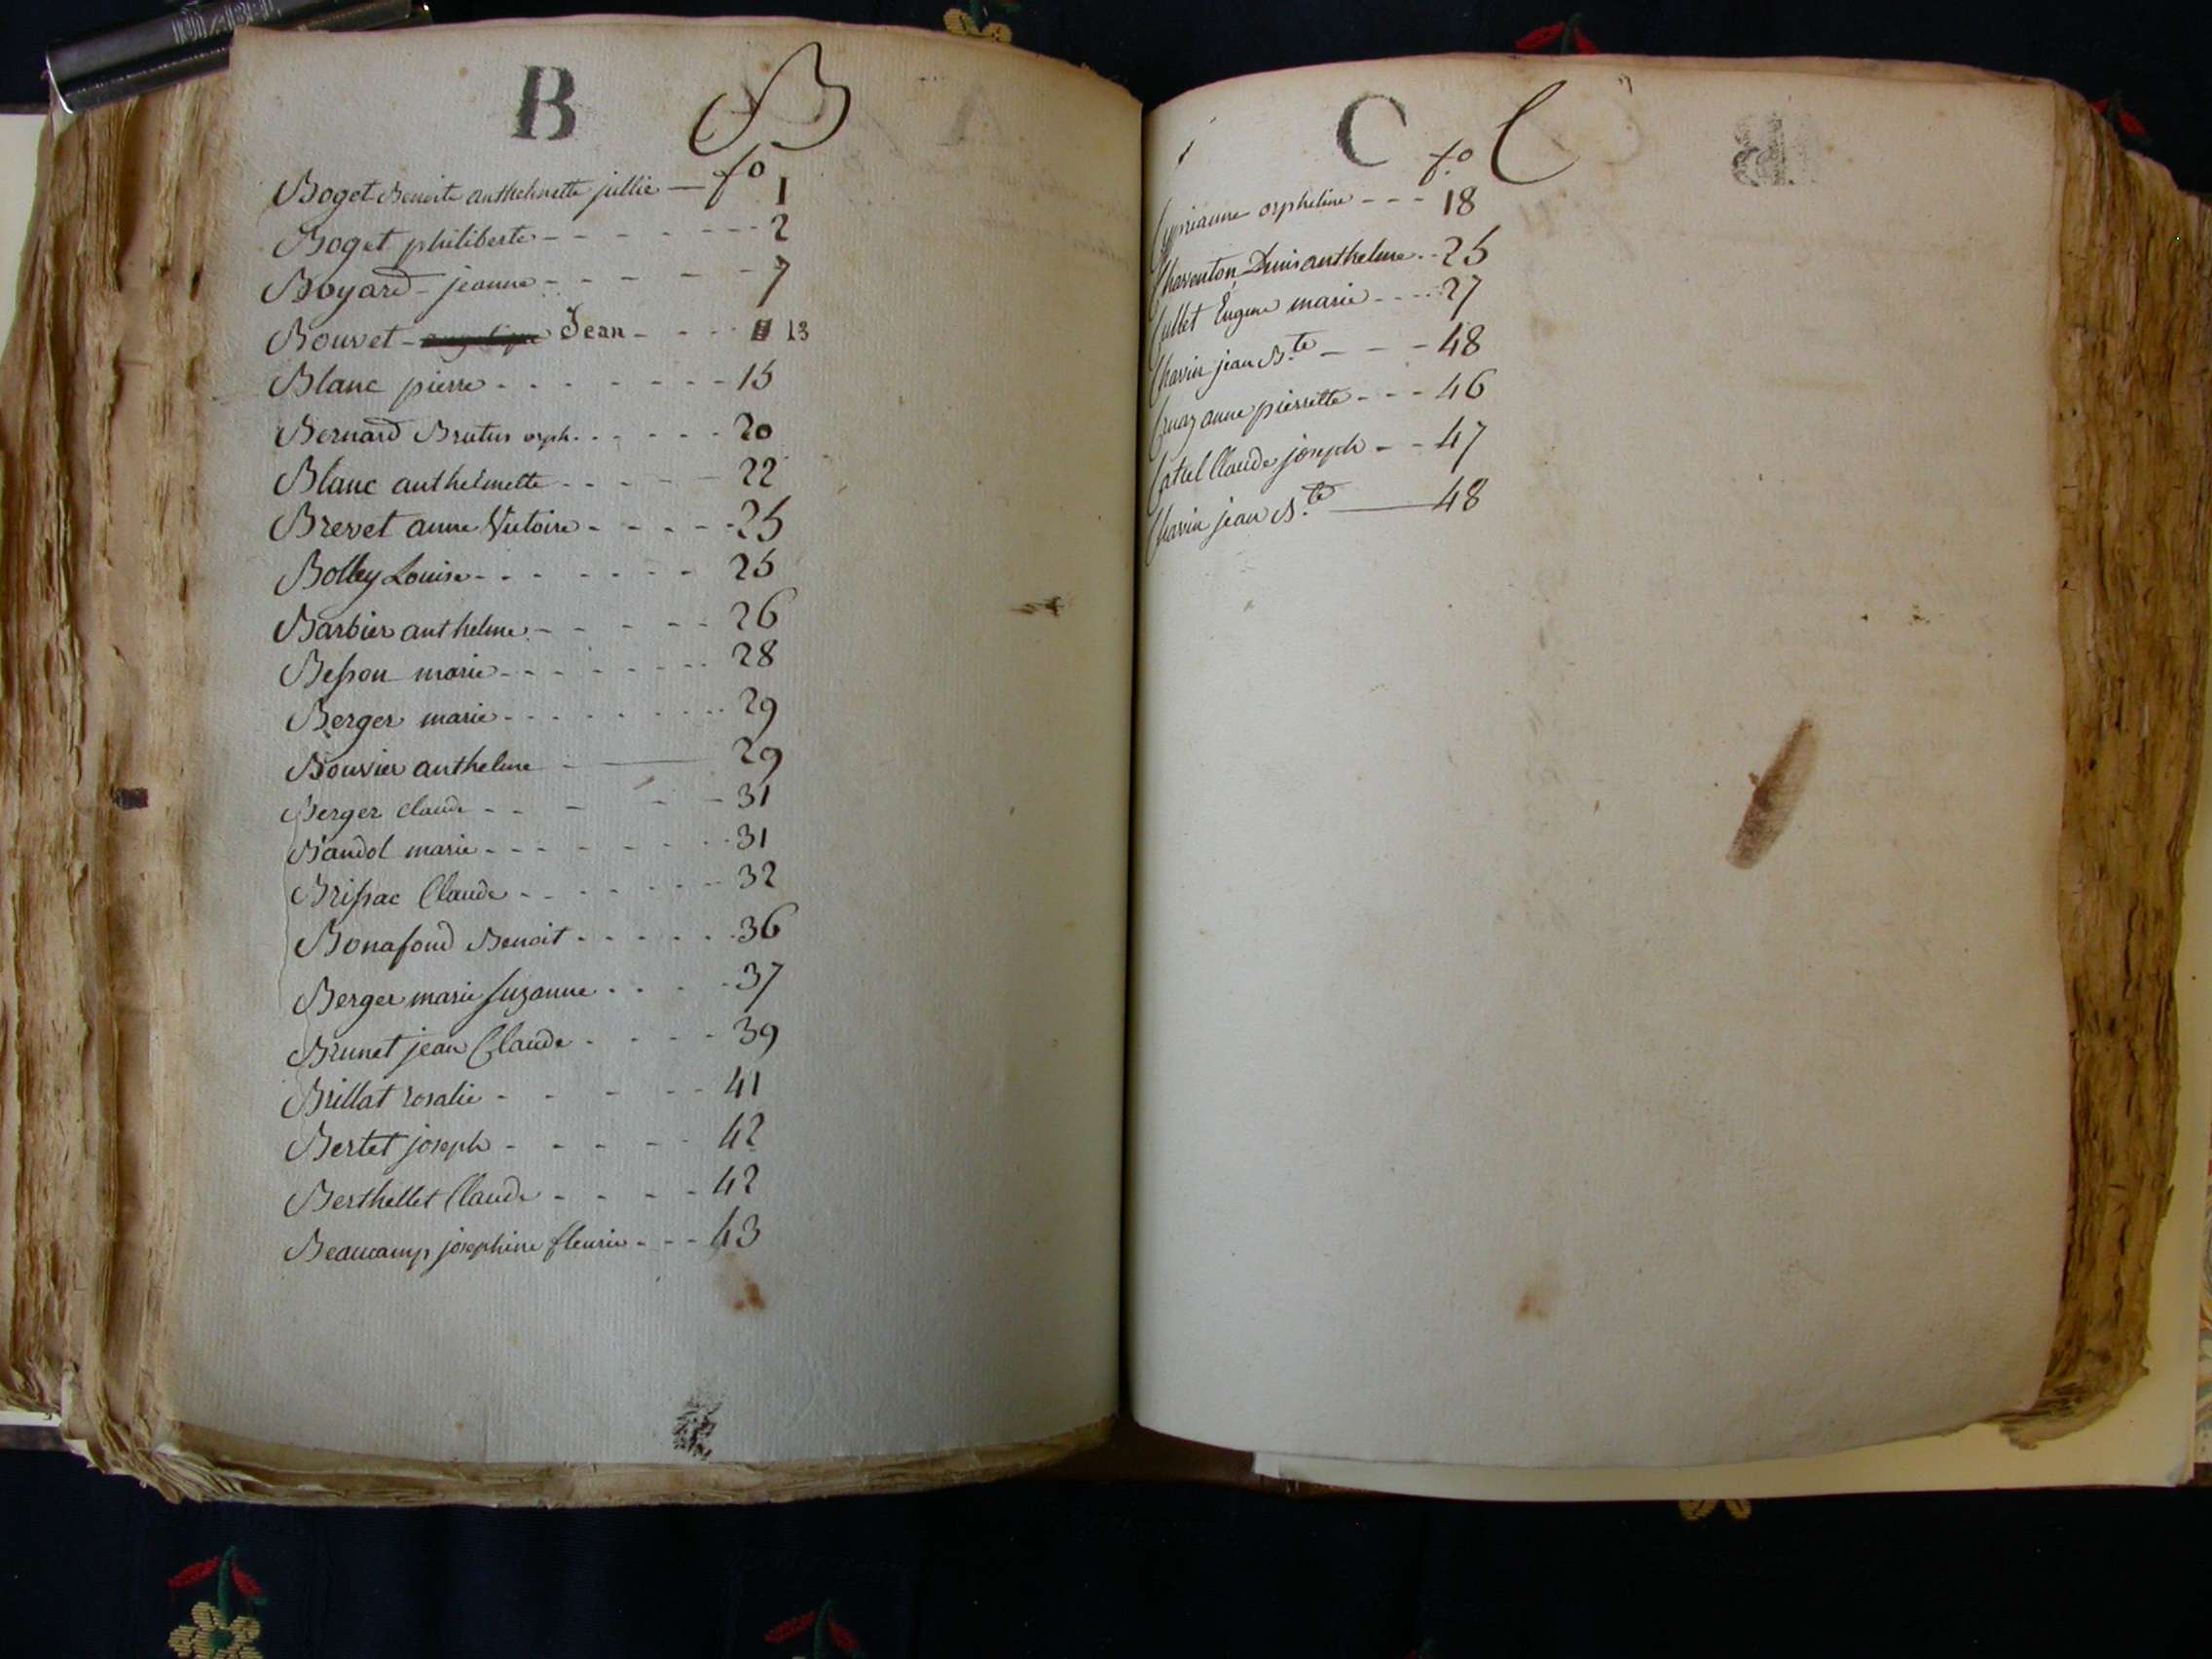 B B
Boget Benoite anthelmette jullie — fo 1
Boget philiberte - - - - - - - 2
Boyard - jeanne - - - - - 7
Bouvet - Jean - - - - 13
Blanc pierre - - - - - - - 15
Bernard Brutus orph. - - - - - 20
Blanc anthelmette - - - - - 22
Brevet anne Victoire - - - - - 25
Bolley Louise - - - - - - - 25
Barbier anthelme - - - - - - 26
Beſson marie - - - - - - - - 28
Berger marie - - - - - - - - 29
Bouvier anthelme - —— 29
Berger claude - - - - - 31
Baudol marie - - - - - - - - 31
Briſsac Claude - - - - - - - 32
Bonafond Benoit - - - - - - 36
Berger marie Suzanne - - - - 37
Brunet jean Claude - - - - 39
Brillat rosalie - - - - - 41
Bertet joseph - - - - - 42
Berthellet Claude - - - - 42
Beaucamp josephine fleurie - - - 43
C fo C
Cyprianne orpheline - - - 18
Charenton Denis anthelme - - 25
Cullet Eugene marie - - - - 27
Chavin jean B.te - - - 48
Cruaz anne pierrette - - - 46
Catel Claude joseph - - 47
Chavin jean B.te —— 48